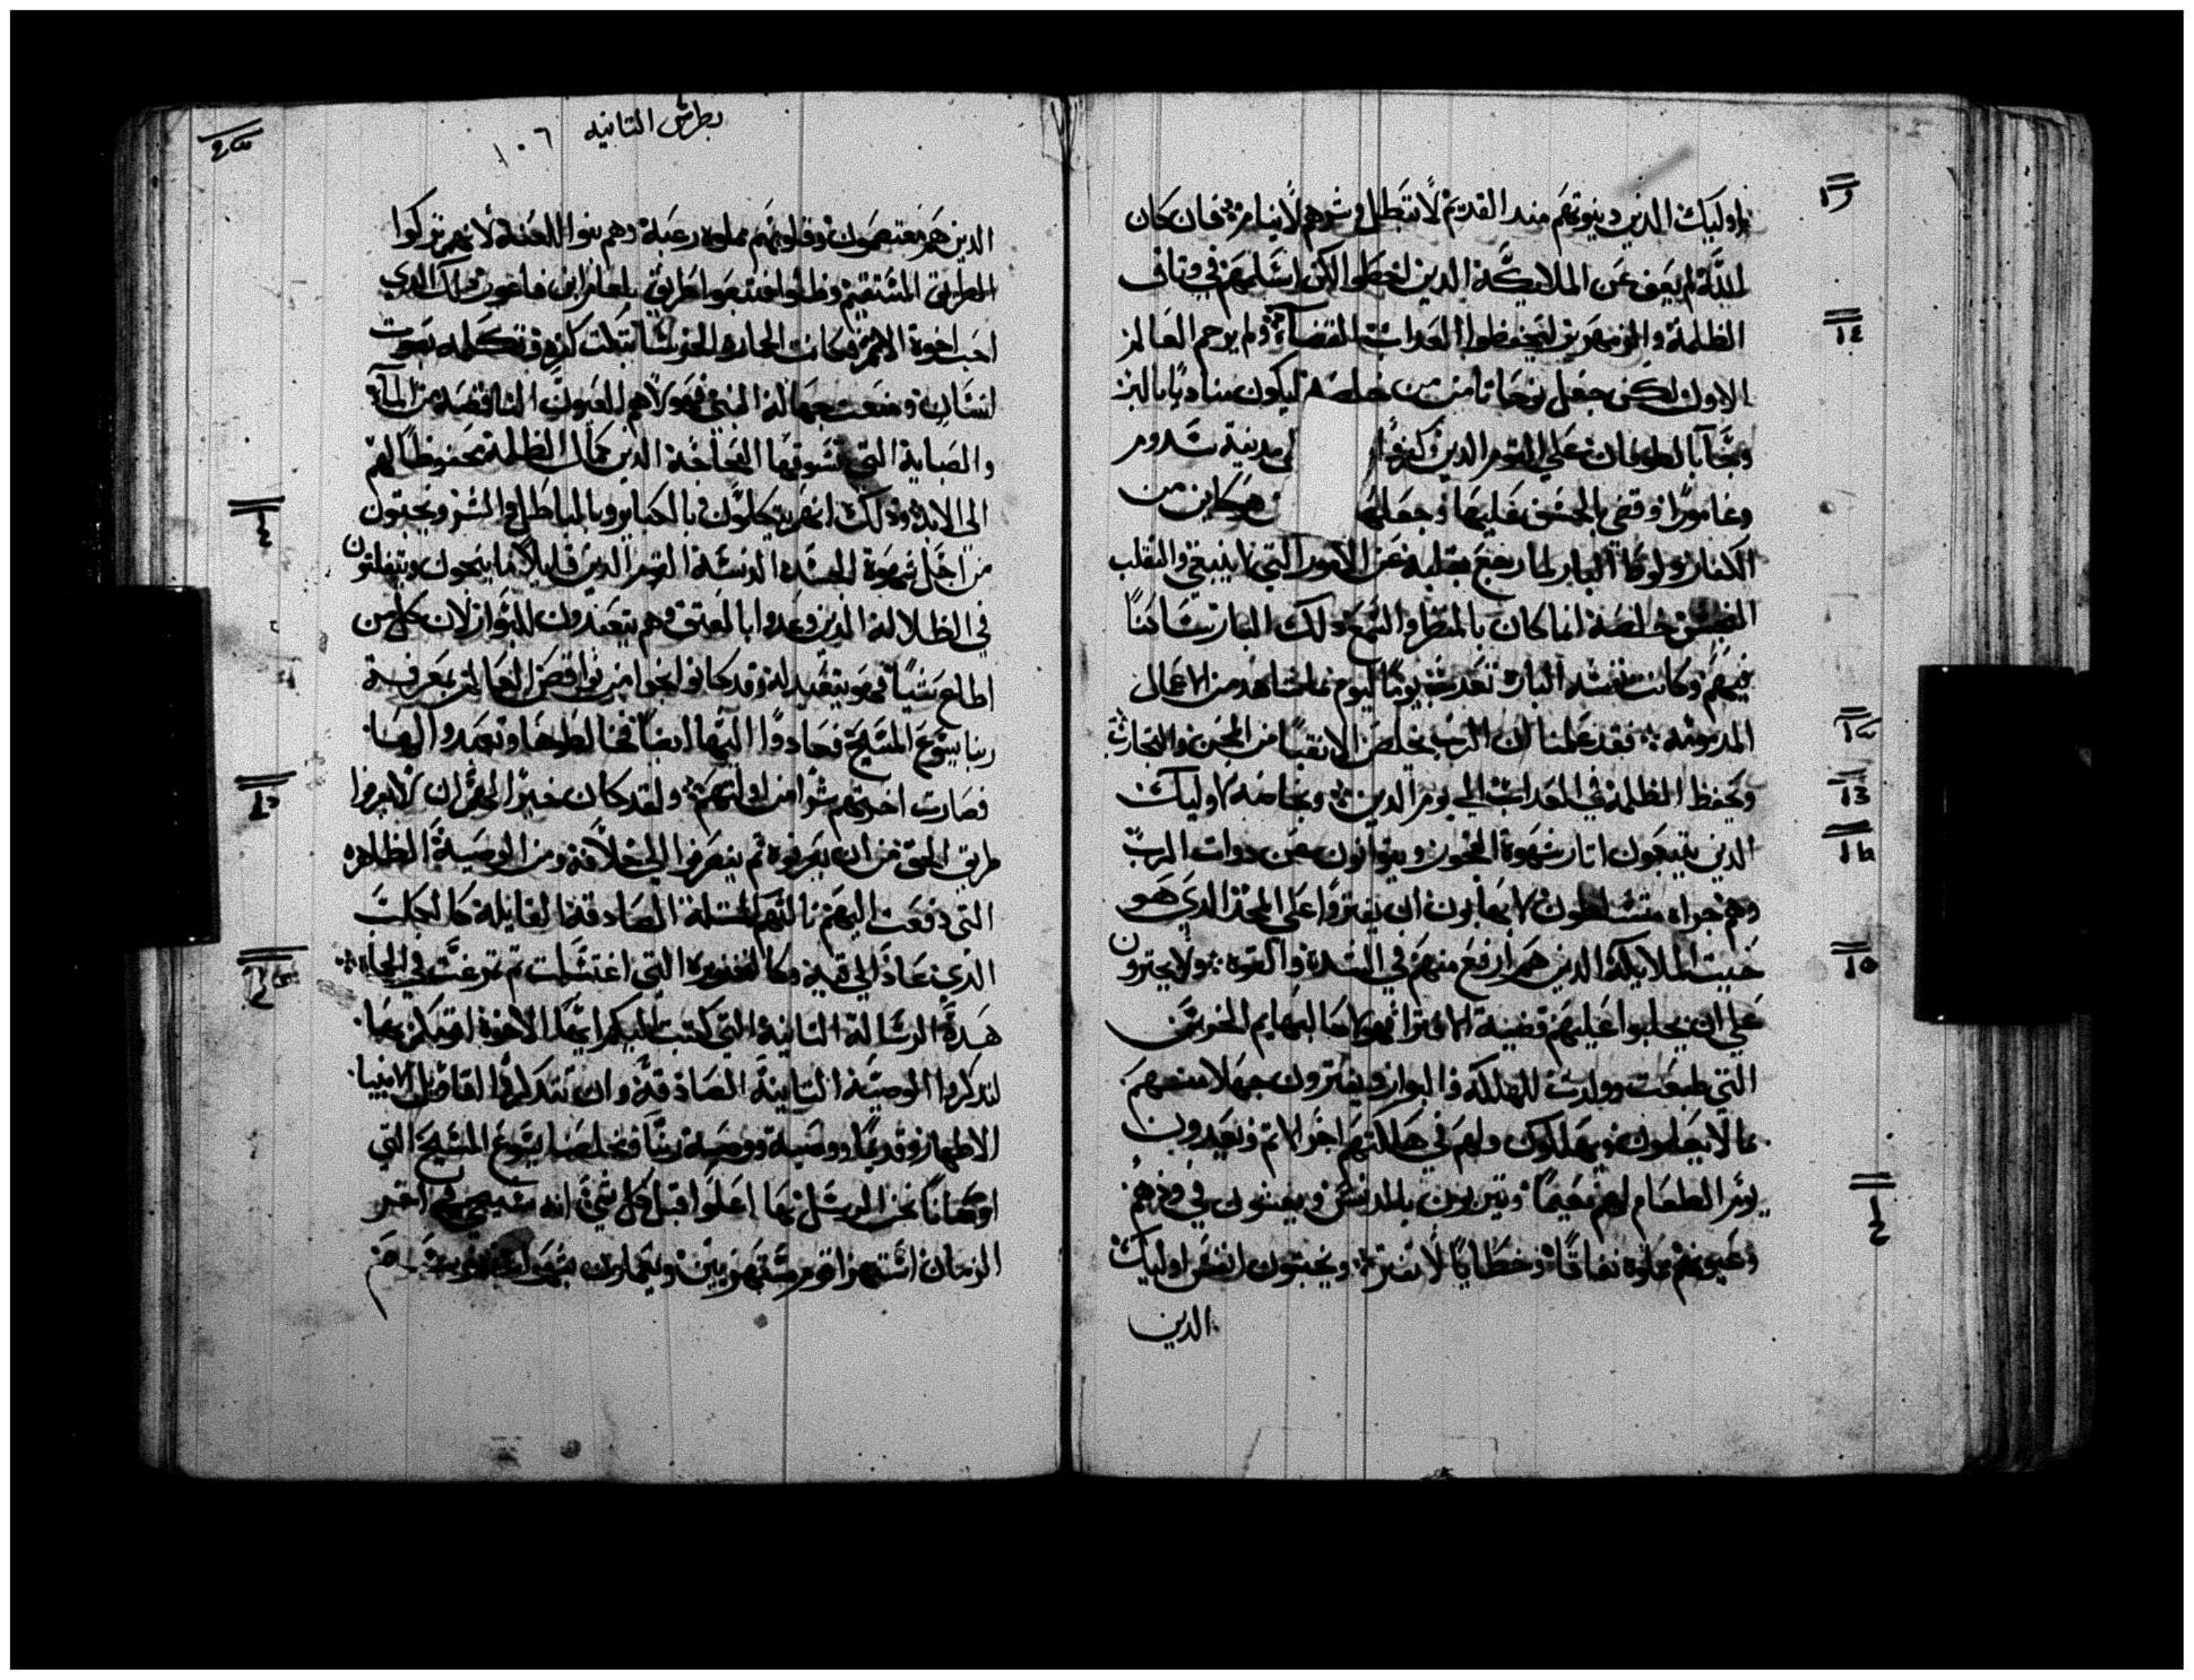 اوليك الدين دينونتهم مند القديم لا تبطل وشرهم لا ينام فان كان
الله لم يعف عن الملايكة الدين اخطوا لكن اسلمهم في وتاف
الظلمة والزمهرير ليحفظوا العداب القضا ولم يرحم العالم
الاول لكن جعل نوحا تامن من خلصه ليكون مناديا بالبر
وجا بالطوفان علي القوم الدين كفروا مدينة سدوم
وغامورا وقضي بالخسف عليها وجعلها كاين من
الكفار ولوط البار لما رجع بقلبه عن الامور التي لا ينبغي والتقلب
النجس خلصه انما كان بالنظر والسمع دلك البار ساكنا
فيهم وكانت نفسه الباره تعدب يوما ليوم مما تشاهد من الاعمال
المدمومه فقد علمنا ان الرب يخلص الاتقيا من المحن والتجارب
ويحفظ الظلمة في العداب الي يوم الدين وبخاصه اوليك
الدين يتبعون اتار شهوة النجور ويتوانون عن دوات الرب
وهم جراه متسلطون لا يهابون ان يفتروا علي المجد الدي هو
حيت الملايكة الدين هم ارفع منهم في الشدة والقوه ولا يجترون
علي ان يجلبوا عليهم قضية الافترا فهولا كالبهايم الخرس
التي طبعت وولدت للهلكة والبوار ويفترون جهلا منهم
بما لا يعلمون ويهلكون ولهم في هلكتهم اجر الاتم ويعدون
يوم الطعام لهم نعيما بالدنس ويعنون في فرحهم
وعيونهم مملوه نفاقا وخطايا لا تفتر ويخبتون انفس اوليك
الدين
بطرس التانيه
١٠٦
الدين هم معتصمون وقلوبهم مملوه رغبة وهم بنوا اللعنة لانهم تركوا
الطريق المستقيم وضلوا فتبعوا طريق بلعام ابن فاغور دلك الدي
احب اجرة الاتم فكانت الحاره الخرسا بكتت كفره وتكلمه بصوت
انسان ومنعت جهالة النبي فهولا هم العيون الناقصة من الما
والضبابة التي تسوقها العجاجة الدين كمال الظلمة محفوظا لهم
الي الابد ودلك انهم يتكلمون بالكباير وبالباطل والشر ويخبتون
من اجل شهوة الجسد الدنسة القوم الدين قليلا ما ينجون ويتفلتون
في الظلالة الدين وعدوا بالعتق وهم يتعبدون للبوار لان كل من
اطاع شيا فهو يتعبد له وقد كانوا نجوا من نواقص العالم بمعرفة
ربنا يسوع المسيح فعادوا اليها ايضا فخالطوها وتعبدوا لها
فصارت اخرتهم شرا من اولتهم ولقد كان خيرا لهم ان لا يعرفوا
طريق الحق من ان يعرفوه تم ينصرفوا الي خلافه ومن الوصية الظاهره
التي دفعت اليهم نالتهم المسلة الصادقة القايلة كالكلب
الدي عاد الي قيه وكالخنزيره التي اغتسلت تم تمرغت في الحماه
هده الرسالة التانية التي كتبت اليكم ايها الاخوة اوتمكن بها
لتدكروا الوصية التانية الصادقة وان تتدكروا اقاويل الانبيا
الاطهار وقديما ووصية ربنا ومخلصنا يسوع المسيح التي
اوصانا نحن الرسل بها اعلوا قبل كل شي انه سيجي في اخر
الزمان استهزا قوم مستهزيين ويعملون بشهوات